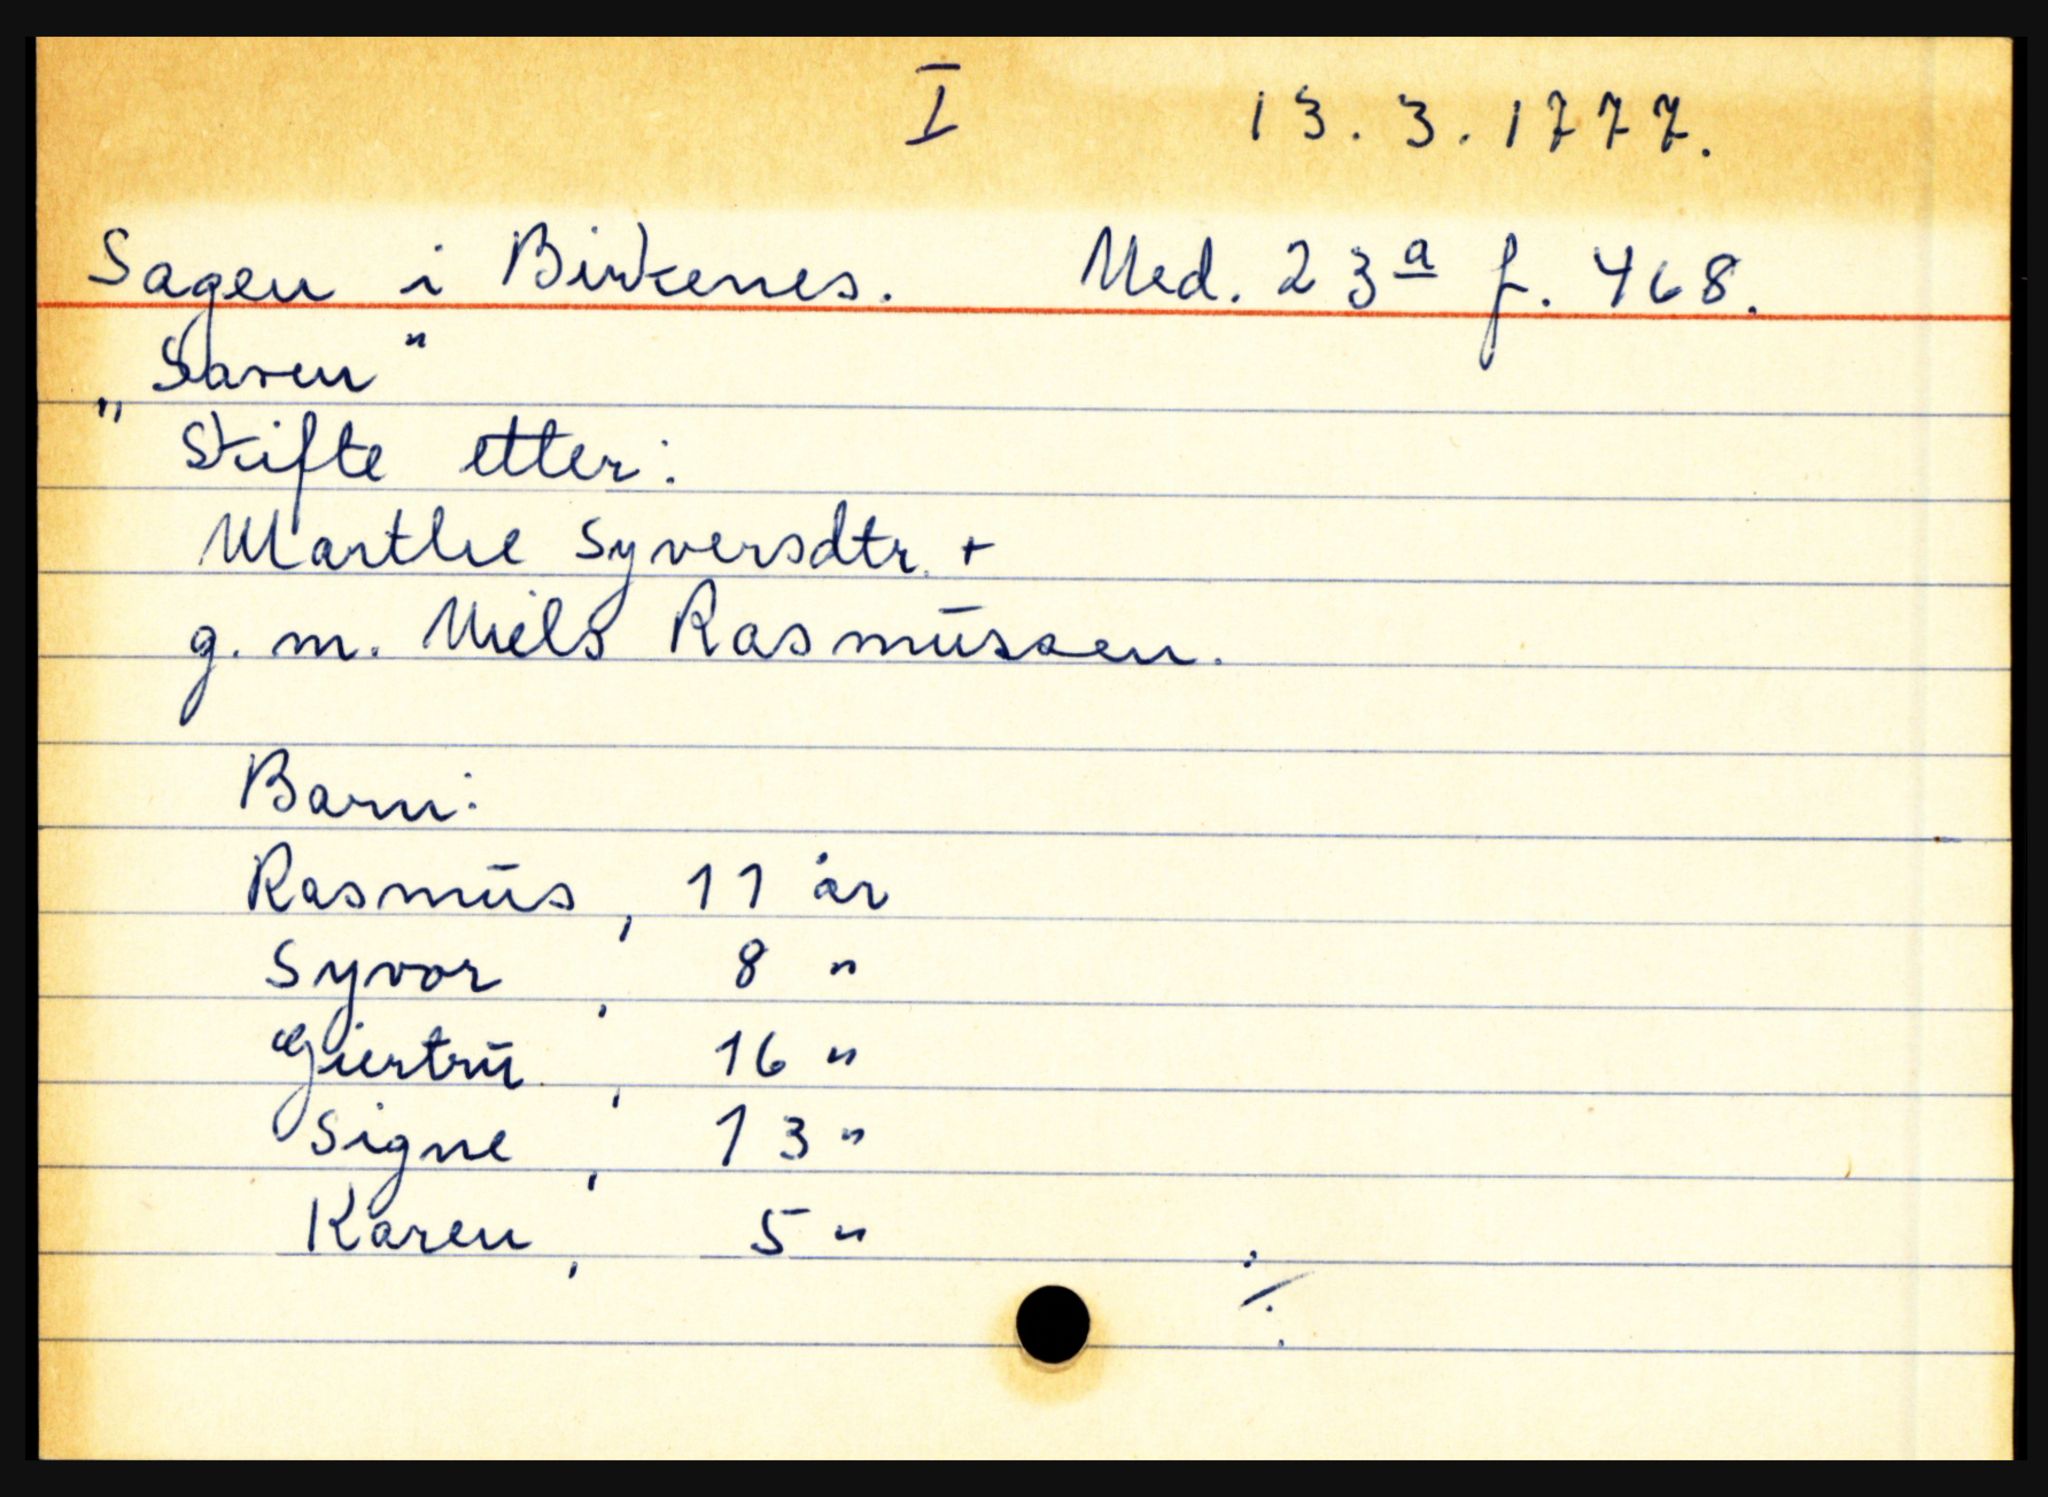 I 13.3.1777.
Sagen i Birkenes. Ned. 23a f. 468.
„Saren"
Skifte etter:
Marthe Syversdtr. +
g. m. Niels Rasmussen.
Barn:
Rasmus, 11 år
Syvor, 8 "
Giertru, 16 "
Signe, 13 "
Karen, 5 "